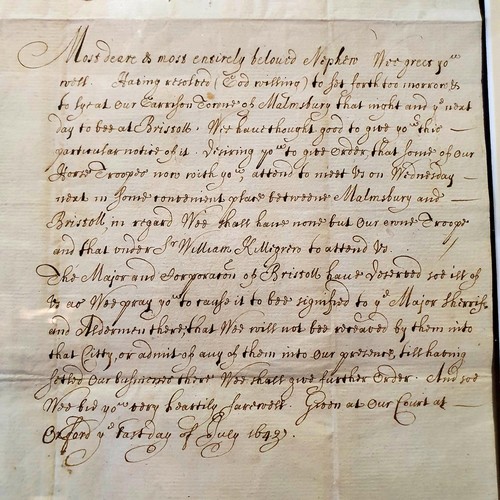 Most deare & most entirely beloued Nephew Wee greet yo^u
well. Having resolved (God willing) to set forth too morrow &
to lye at Our Garrison Towne of Malmsbury that night and y^e next
day to bee at Bristoll. Wee have thought good to give yo^u this —
particular notice of it. Desiring yo^u to give Order, that some of Our
Horse Troopes now with yo^u attend to meet Us on Wednesday —
next in some convenient place betweene Malmsbury and —
Bristoll, in regard Wee shall have none but Our owne Troope
and that under S^r William Killigrew to attend Us.
The Major and Corporation of Bristoll have deserved soe ill of
Us as Wee pray yo^u to cause it to bee signified to y^e Major Sherriffs
and Aldermen there, that Wee will not bee receaved by them into
that Citty, or admit of any of them into Our presence, till having
setled Our businesse there Wee shall give further Order. And soe
Wee bid yo^u very heartily farewell. Given at Our Court at —
Oxford y^e last day of July 1643.